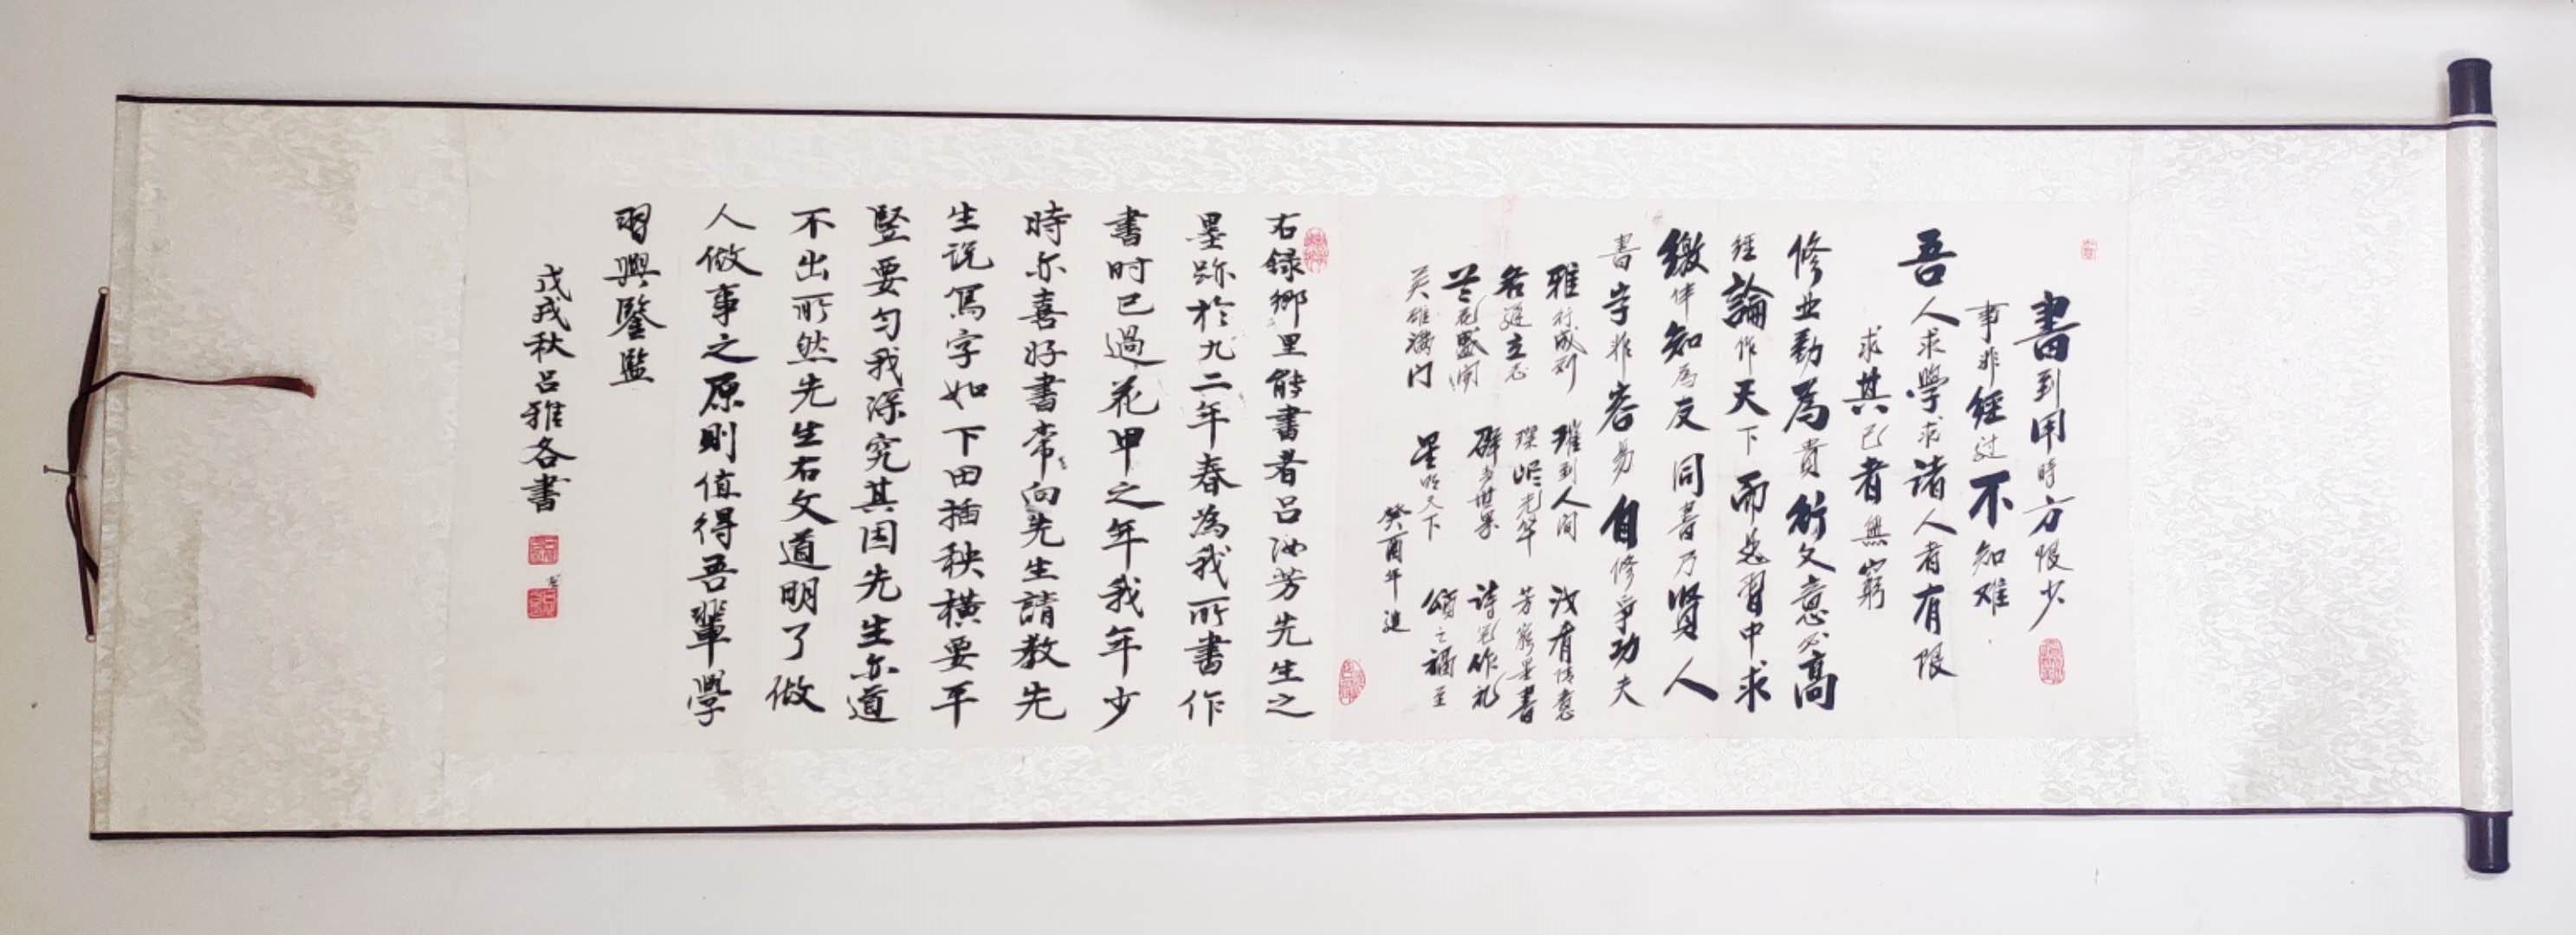 書到用時方恨少
事非經过不知难
吾人求學求诸人者有限
求其己者無窮
修业勤為貴行文意必高
經論作天下而总習中求
知為友同書乃賢人
書字非容易自修争功夫
雅行成列 璀到人间 汝看情意
名遊立石 璨 光华 芳 墨書
芝花盛開 世界 诗 作礼
英雄满门 星 天下 頌之福至
癸酉年 進
右録鄉里能書者吕汝芳先生之
墨跡於九二年春為我所書作
書时已過花甲之年我年少
時亦喜好書常向先生請教先
生说寫字如下田插秧橫要平
竖要匀我深究其因先生亦道
不出所然先生右文道明了做
人做事之原則值得吾輩學
習興鑒監
戊戌秋吕雅各書